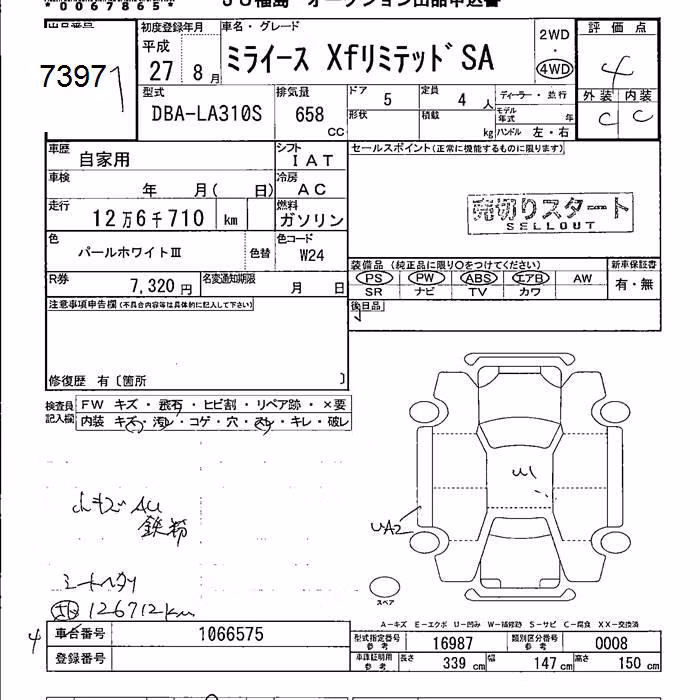 *0067865*
JU福島 オークション出品申込書
出品番号
73971
初度登録年月
平成
27 8 月
車名・グレード
ミライース XfリミテッドSA
2WD
・
4WD
評価点
4
外装 内装
C C
型式
DBA-LA310S
排気量
658
CC
ドア
5
形状
定員
4 人
積載
kg
ディーラー・並行
モデル年式 年
ハンドル 左・右
車歴
自家用
シフト
IAT
車検
年 月( 日)
冷房
AC
走行
12万6千710 km
燃料
ガソリン
色
パールホワイトⅢ
色替
色コード
W24
R券
7,320 円
名変通知期限
月 日
セールスポイント(正常に機能するものに限ります)
売切りスタート
SELLOUT
装備品 (純正品に限り○をつけてください)
PS PW ABS エアB AW
SR ナビ TV カワ
新車保証書
有・無
後日品
注意事項申告欄(不具合内容等は具体的に記入して下さい)
修復歴 有〔箇所 〕
検査員記入欄
FW キズ・飛石・ヒビ割・リペア跡・×要
内装 キズ・汚レ・コゲ・穴・スレ・キレ・破レ
鉄粉
126712km
UA2
スペア
A-キズ E-エクボ U-凹み W-補修跡 S-サビ C-腐食 XX-交換済
4
車台番号
1066575
登録番号
型式指定番号 参考
16987
類別区分番号 参考
0008
車庫証明用 参考
長さ 339 cm
幅 147 cm
高さ 150 cm